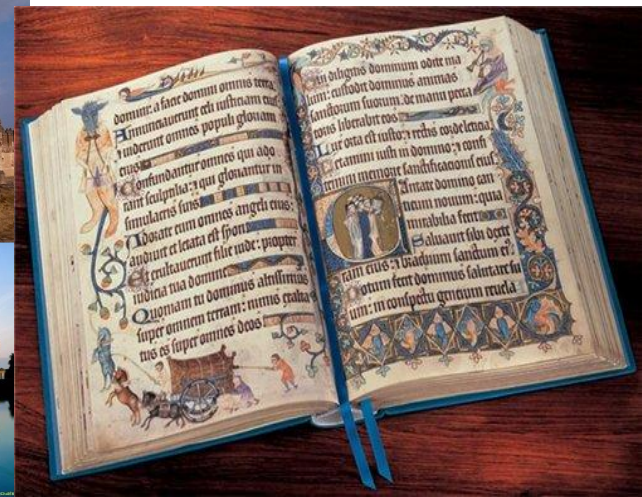 domini: a facie domini omnis terra.
Annunciauerunt celi iusticiam eius:
& uiderunt omnes populi gloriam
eius
Confundantur omnes qui ado
rant sculptilia: & qui gloriantur in
simulacris suis
Adorate eum omnes angeli eius:
audiuit et letata est syon
Et exultauerunt filie iude: propter
iudicia tua domine
Quoniam tu dominus altissimus
super omnem terram: nimis exalta
tus es super omnes deos
Qui diligitis dominum odite ma
lum: custodit dominus animas
sanctorum suorum: de manu pecca
toris liberabit eos
Lux orta est iusto: & rectis corde leticia
Letamini iusti in domino: & confi
temini memorie sanctificationis eius.
Cantate domino can
ticum nouum: quia
mirabilia fecit
Saluauit sibi dexte
ram eius: & brachium sanctum ei
Notum fecit dominus salutare su
um: in conspectu gentium reuela